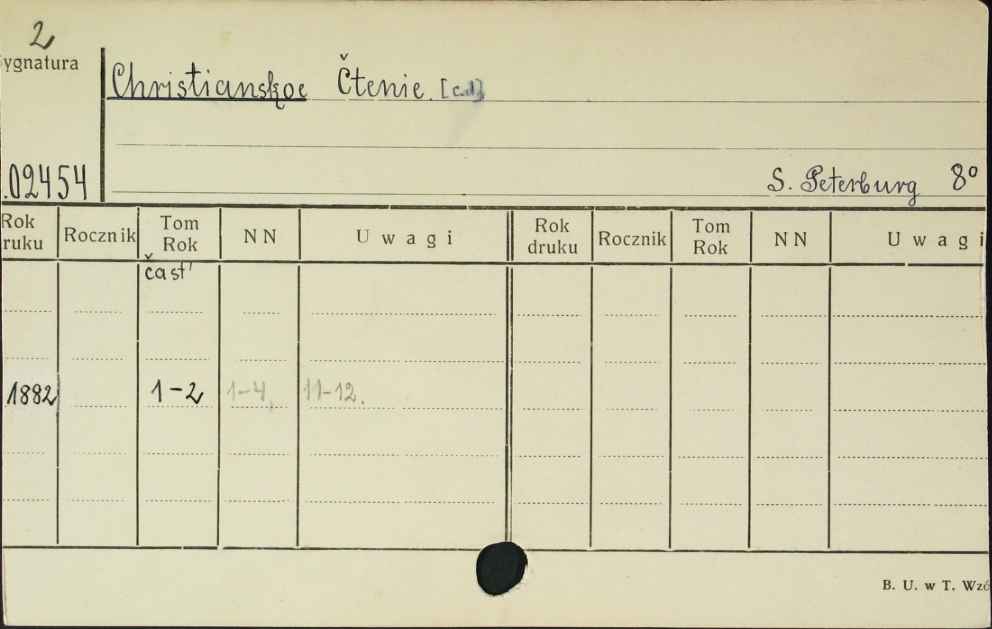 2
Sygnatura
Christianskoe Čtenie. [c.d]
.02454
S. Peterburg 8°
Rok druku Rocznik Tom Rok NN Uwagi Rok druku Rocznik Tom Rok NN Uwagi
čast'
1882 1-2 1-4, 11-12.
B. U. w T. Wzó